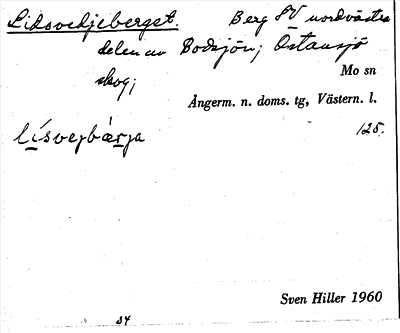 Lidsvedjeberget. Berg SV nordvästra
delen av Bodsjön; Östansjö
skog;
Mo sn
Ångerm. n. doms. tg, Västern. l.
125.
lísvejbærja
Sven Hiller 1960
34